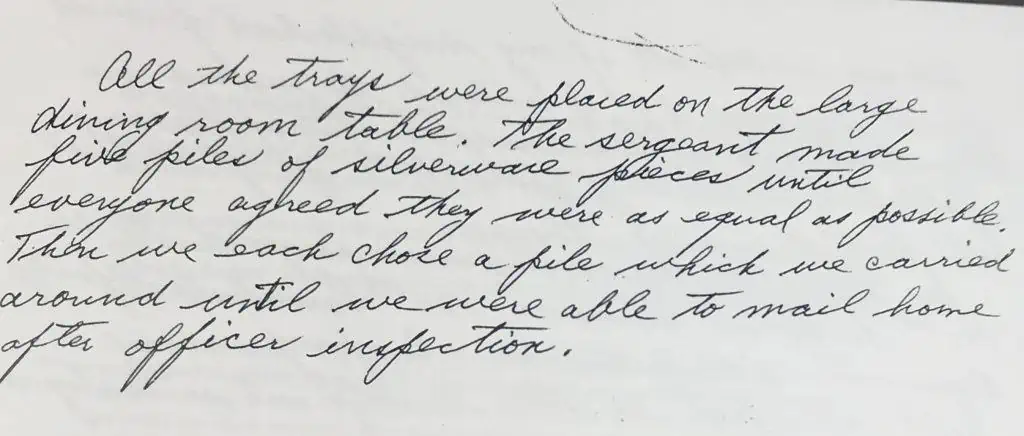 All the trays were placed on the large
dining room table. The sergeant made
five piles of silverware pieces until
everyone agreed they were as equal as possible.
Then we each chose a pile which we carried
around until we were able to mail home
after officer inspection.